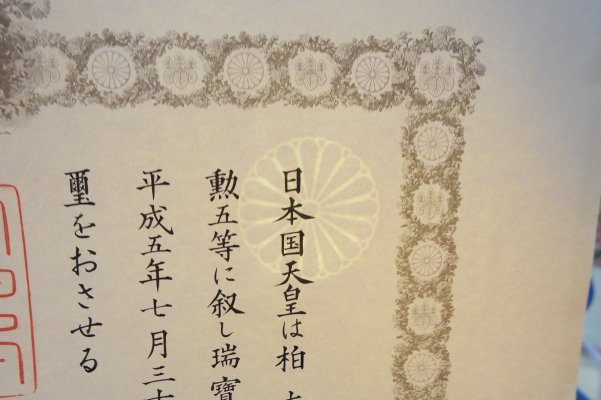 日本国天皇は柏
勲五等に叙し瑞寶
平成五年七月三
璽をおさせる